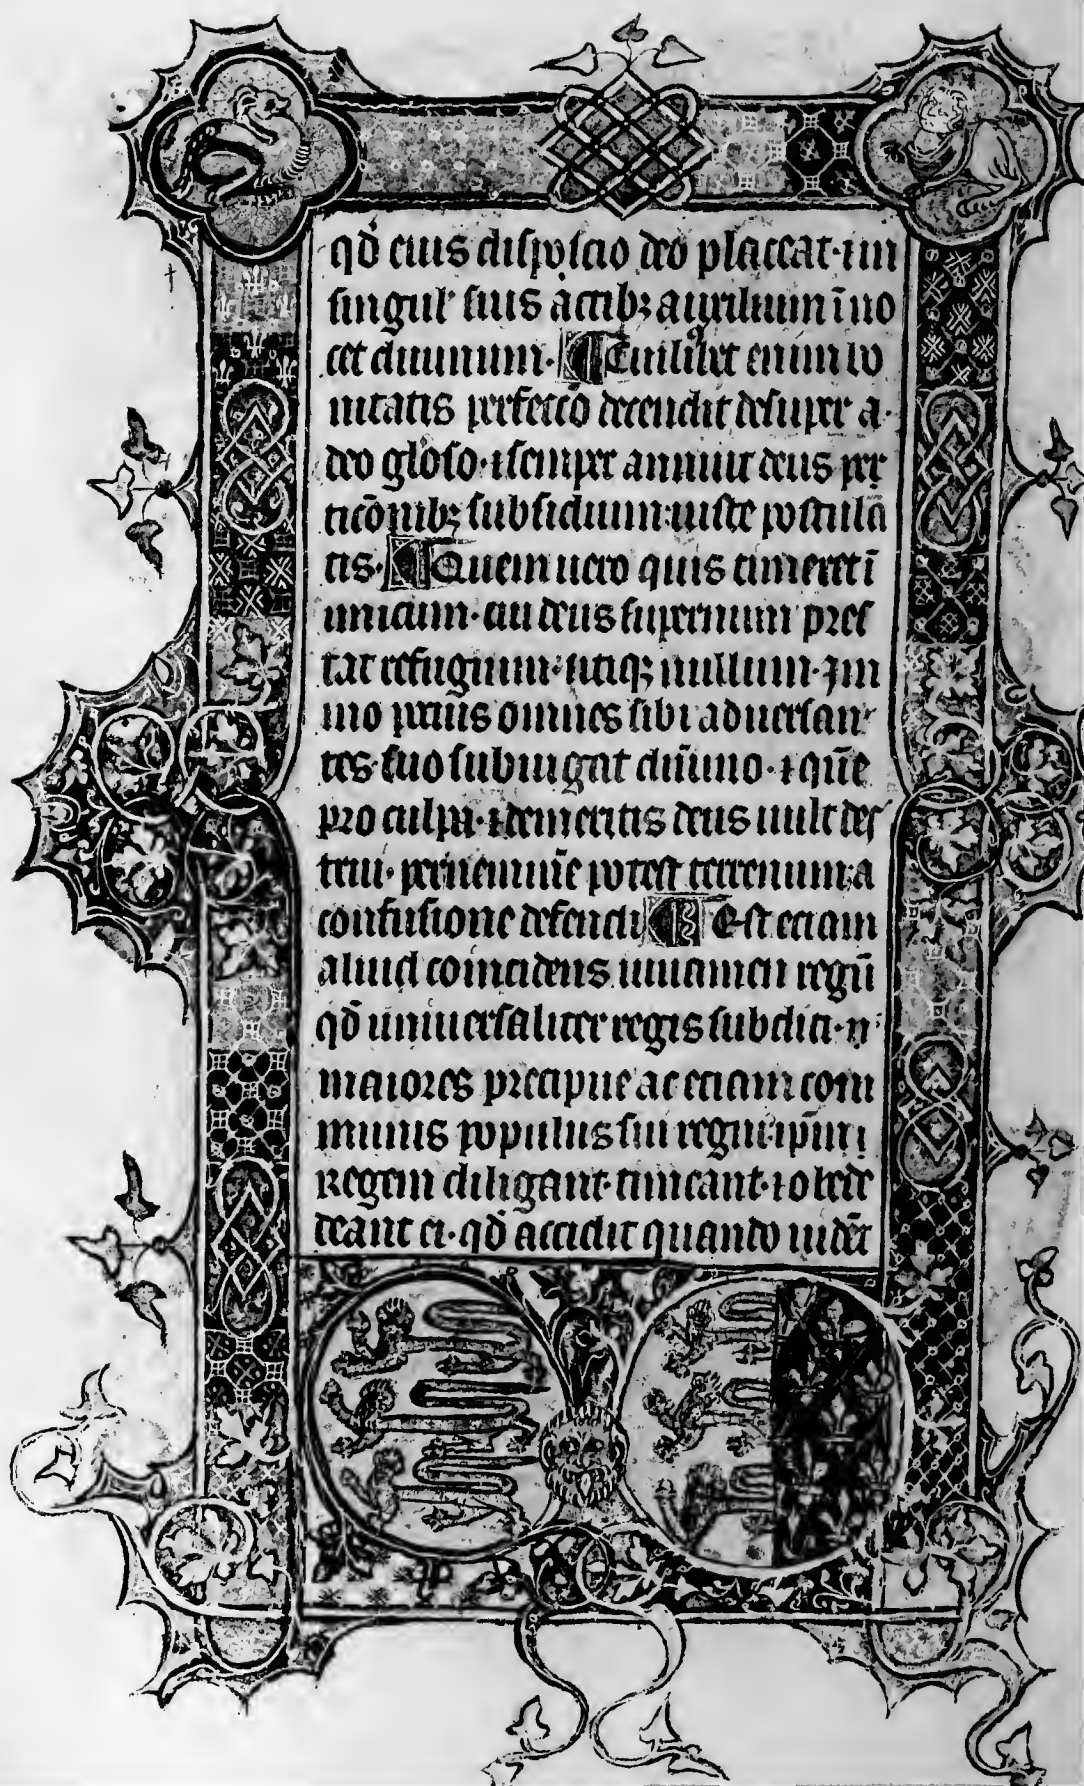 qđ eius dispoicio deo placeat · ⁊ in
singul' suis actib; auxilium īuo
cet diuinum · Cuiuslibet enim bo
nitatis perfectō descendit desuper a
deo glōso · ⁊ semper annuit deus pe
ticōnib; subsidium iuste postulā
tis · Quem uero quis timeret ī
imicum · cui deus supernum pres
tat refugium · utiq; nullum · Im
mo pocius omnes sibi aduersan
tes suo subiugat dn̄io · ⁊ quē
pro culpa · ⁊ demeritis deus uult des
trui · per potest terrenum · a
confusione defendi Est eciam
aliud coincidens iuuamen regū
qđ uniuersaliter regis subditi ·
maiores precipue ac eciam com
munis populus sui regni · ip̄m
Regem diligant · timeant · ⁊ obe
deant ei · qđ accidit quando uidēt